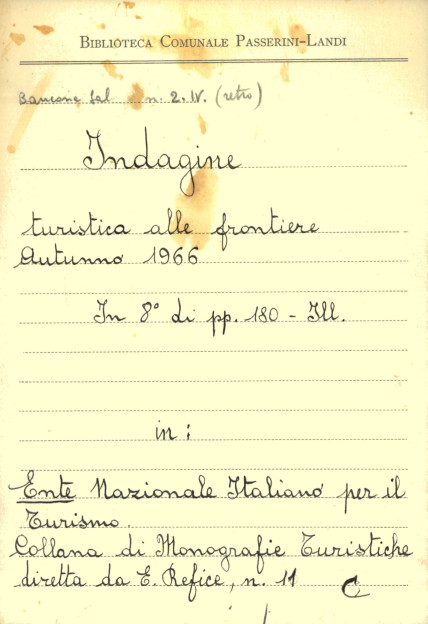 BIBLIOTECA COMUNALE PASSERINI-LANDI
Bancone Sal n. 2. IV. (retro)
Indagine
turistica alle frontiere
Autunno 1966
In 8° di pp. 180 - Ill.
in:
Ente Nazionale Italiano per il
Turismo.
Collana di Monografie Turistiche
diretta da E. Refice, n. 11 C